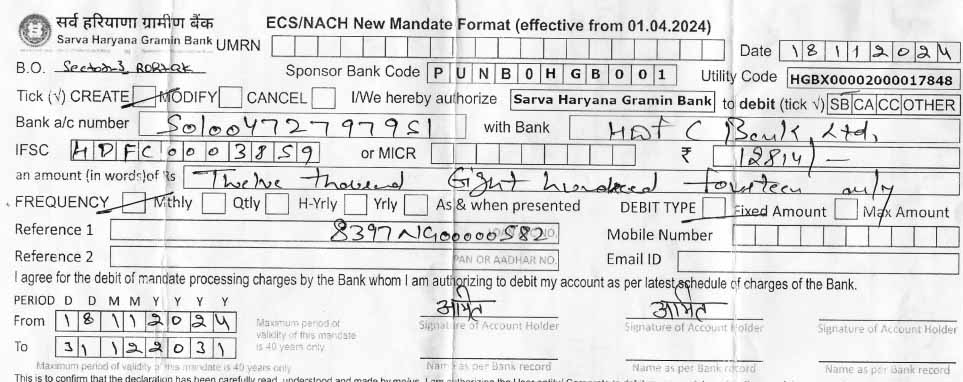 सर्व हरियाणा ग्रामीण बैंक
Sarva Haryana Gramin Bank
ECS/NACH New Mandate Format (effective from 01.04.2024)
UMRN
Date 18112024
B.O. Sector-3, ROHTAK
Sponsor Bank Code PUNB0HGB001
Utility Code HGBX00002000017848
Tick (√) CREATE MODIFY CANCEL I/We hereby authorize Sarva Haryana Gramin Bank to debit (tick √) SB CA CC OTHER
Bank a/c number 50100472797951 with Bank HDFC Bank, Ltd,
IFSC HDFC0003859 or MICR ₹ 12814/-
an amount (in words) of Rs Twelve thousand Eight hundred fourteen only
FREQUENCY Mthly Qtly H-Yrly Yrly As & when presented DEBIT TYPE Fixed Amount Max Amount
Reference 1 8397NG00000582 Mobile Number
Reference 2 PAN OR AADHAR NO. Email ID
I agree for the debit of mandate processing charges by the Bank whom I am authorizing to debit my account as per latest schedule of charges of the Bank.
PERIOD D D M M Y Y Y Y
From 18112024
To 31122031
Maximum period of
validity of this mandate
is 40 years only
अमित अमित
Signature of Account Holder Signature of Account Holder Signature of Account Holder
Maximum period of validity of this mandate is 40 years only
Name as per Bank record Name as per Bank record Name as per Bank record